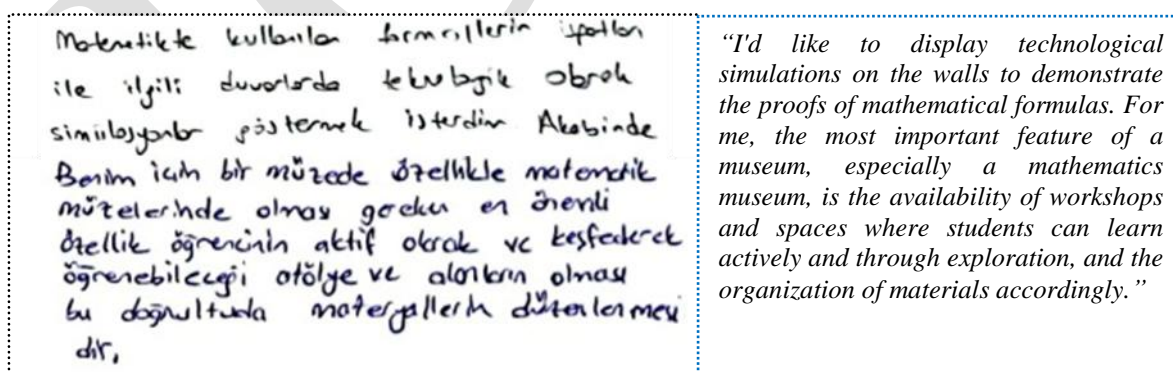 Matematikte kullanılan formüllerin ispatları
ile ilgili duvarlarda teknolojik olarak
simülasyonlar göstermek isterdim Akabinde
Benim için bir müzede özellikle matematik
müzelerinde olması gereken en önemli
özellik öğrencinin aktif olarak ve keşfederek
öğrenebileceği atölye ve alanların olması
bu doğrultuda materyallerin düzenlenmesi
dir.
“I'd like to display technological
simulations on the walls to demonstrate
the proofs of mathematical formulas. For
me, the most important feature of a
museum, especially a mathematics
museum, is the availability of workshops
and spaces where students can learn
actively and through exploration, and the
organization of materials accordingly.”